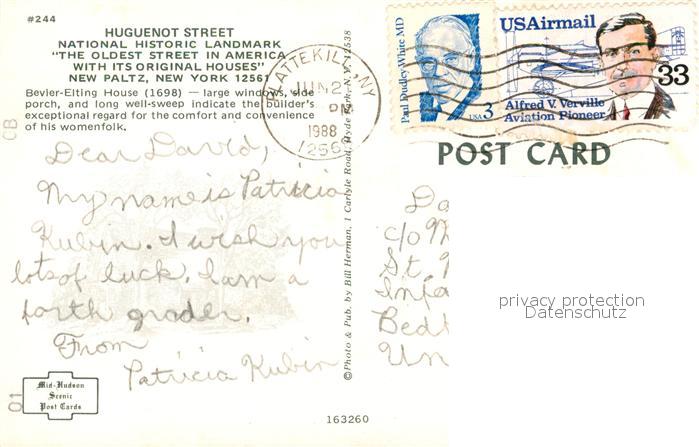 #244
HUGUENOT STREET
NATIONAL HISTORIC LANDMARK
"THE OLDEST STREET IN AMERICA
WITH ITS ORIGINAL HOUSES"
NEW PALTZ, NEW YORK 12561
Bevier-Elting House (1698) — large windows, side
porch, and long well-sweep indicate the builder's
exceptional regard for the comfort and convenience
of his womenfolk.
CB
Dear David,
My name is Patricia
Kubin. I wish you
lots of luck. I am a
forth grader.
From
Patricia Kubin
Mid-Hudson
Scenic
Post Cards
01
©Photo & Pub. by Bill Herman, 1 Carlyle Road, Hyde Park, N.Y. 12538
PLATTEKILL, NY
JUN 2
PM
1988
1256
Paul Dudley White MD
USA 3
USAirmail
33
Alfred V. Verville
Aviation Pioneer
POST CARD
Da
c/o
St.
Infa
Bed
Un
privacy protection
Datenschutz
163260